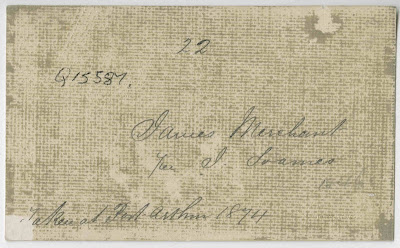 22
Q15587.
James Merchant
per I. Loames
Taken at Port Arthur 1874